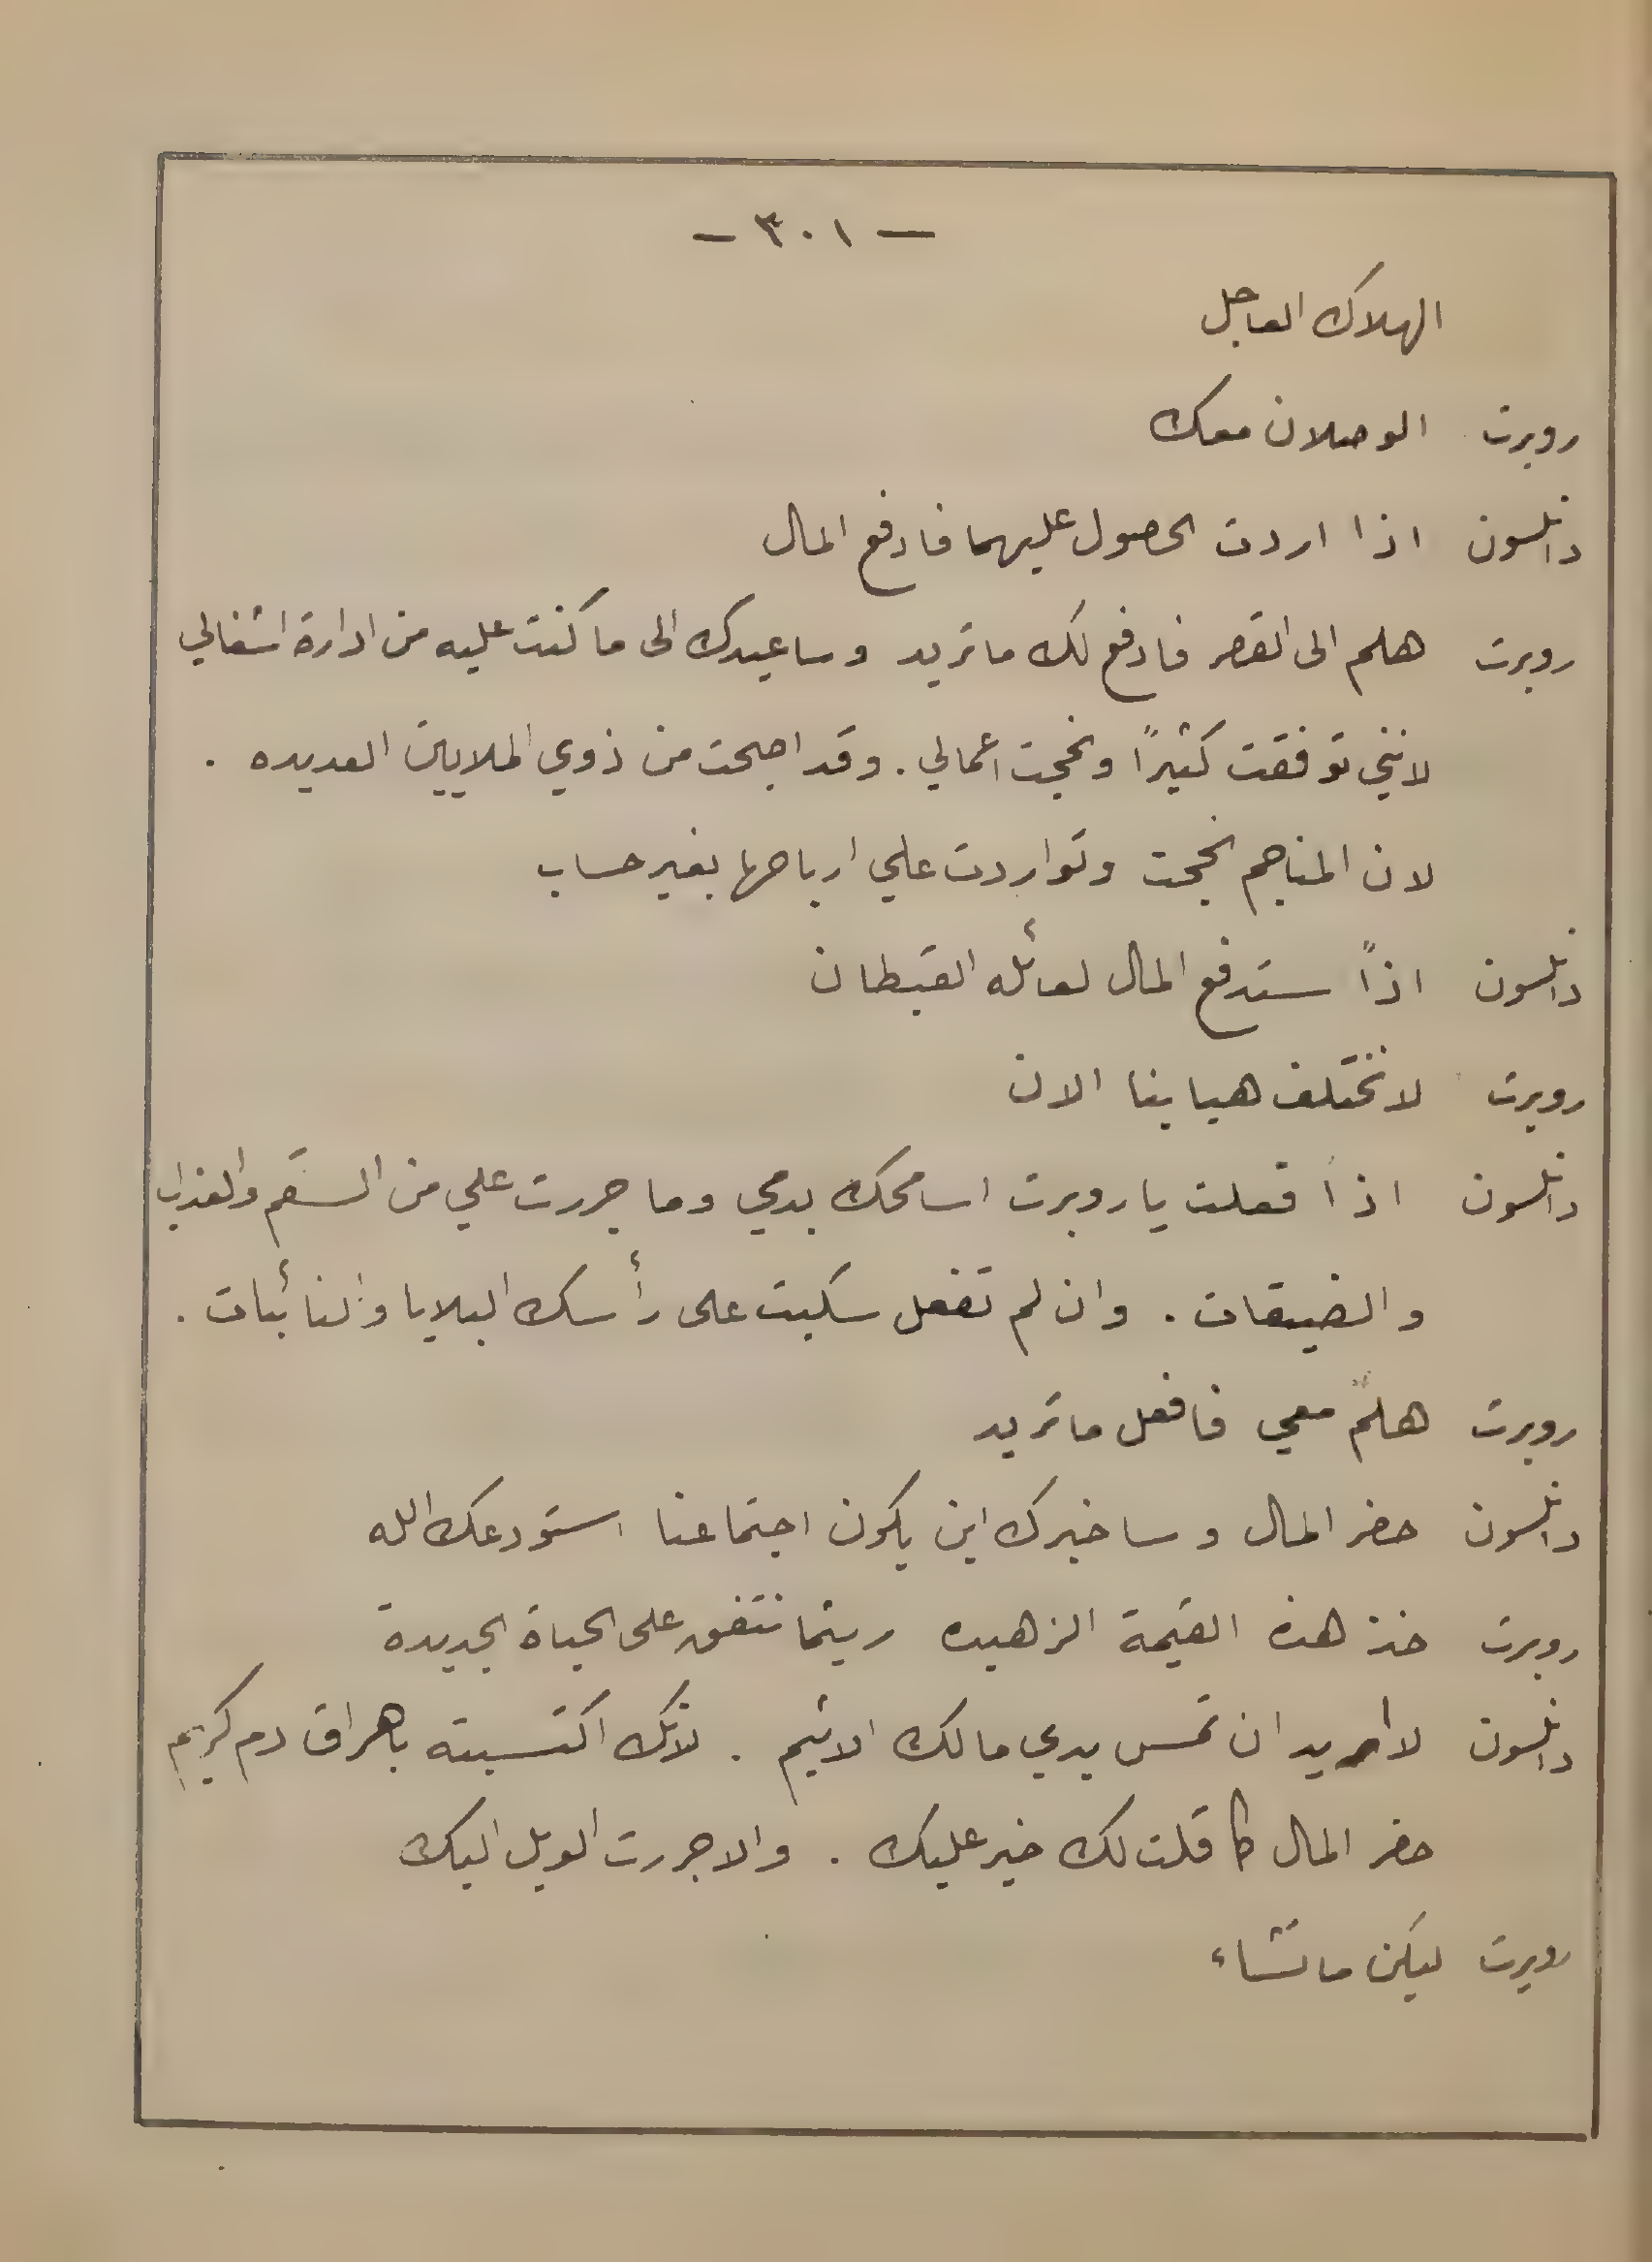 — ٣٠١ —
الهلاك العاجل
روبرت الوصلان معك
دانلسون اذا اردت الحصول عليهما فادفع المال
روبرت هلم الى القصر فادفع لك ما تريد وساعيدك الى ما كنت عليه من ادارة اشغالي
لانني توفقت كثيراً ونجحت اعمالي. وقد اصبحت من ذوي الملايين العديده .
لان المناجم نجحت وتواردت علي ارباحها بغير حساب
دانلسون اذاً ستدفع المال لعائله القبطان
روبرت لا نختلف هيا بنا الان
دانلسون اذا فعلت يا روبرت اسامحك بدمي وما جررت علي من السقم والعذاب
والضيقات . وان لم تفعل سكبت على رأسك البلايا والنائبات .
روبرت هلمّ معي فافعل ما تريد
دانلسون حضر المال وساخبرك اين يكون اجتماعنا استودعك الله
روبرت خذ هذه القيمة الزهيده ريثما نتفق على الحياة الجديدة
دانلسون لا اريد ان تمس يدي مالك الاثيم . لانك اكتسبته باهراق دم كريم
حضر المال كما قلت لك خير عليك . والا جررت الويل اليك
روبرت ليكن ما تشاء